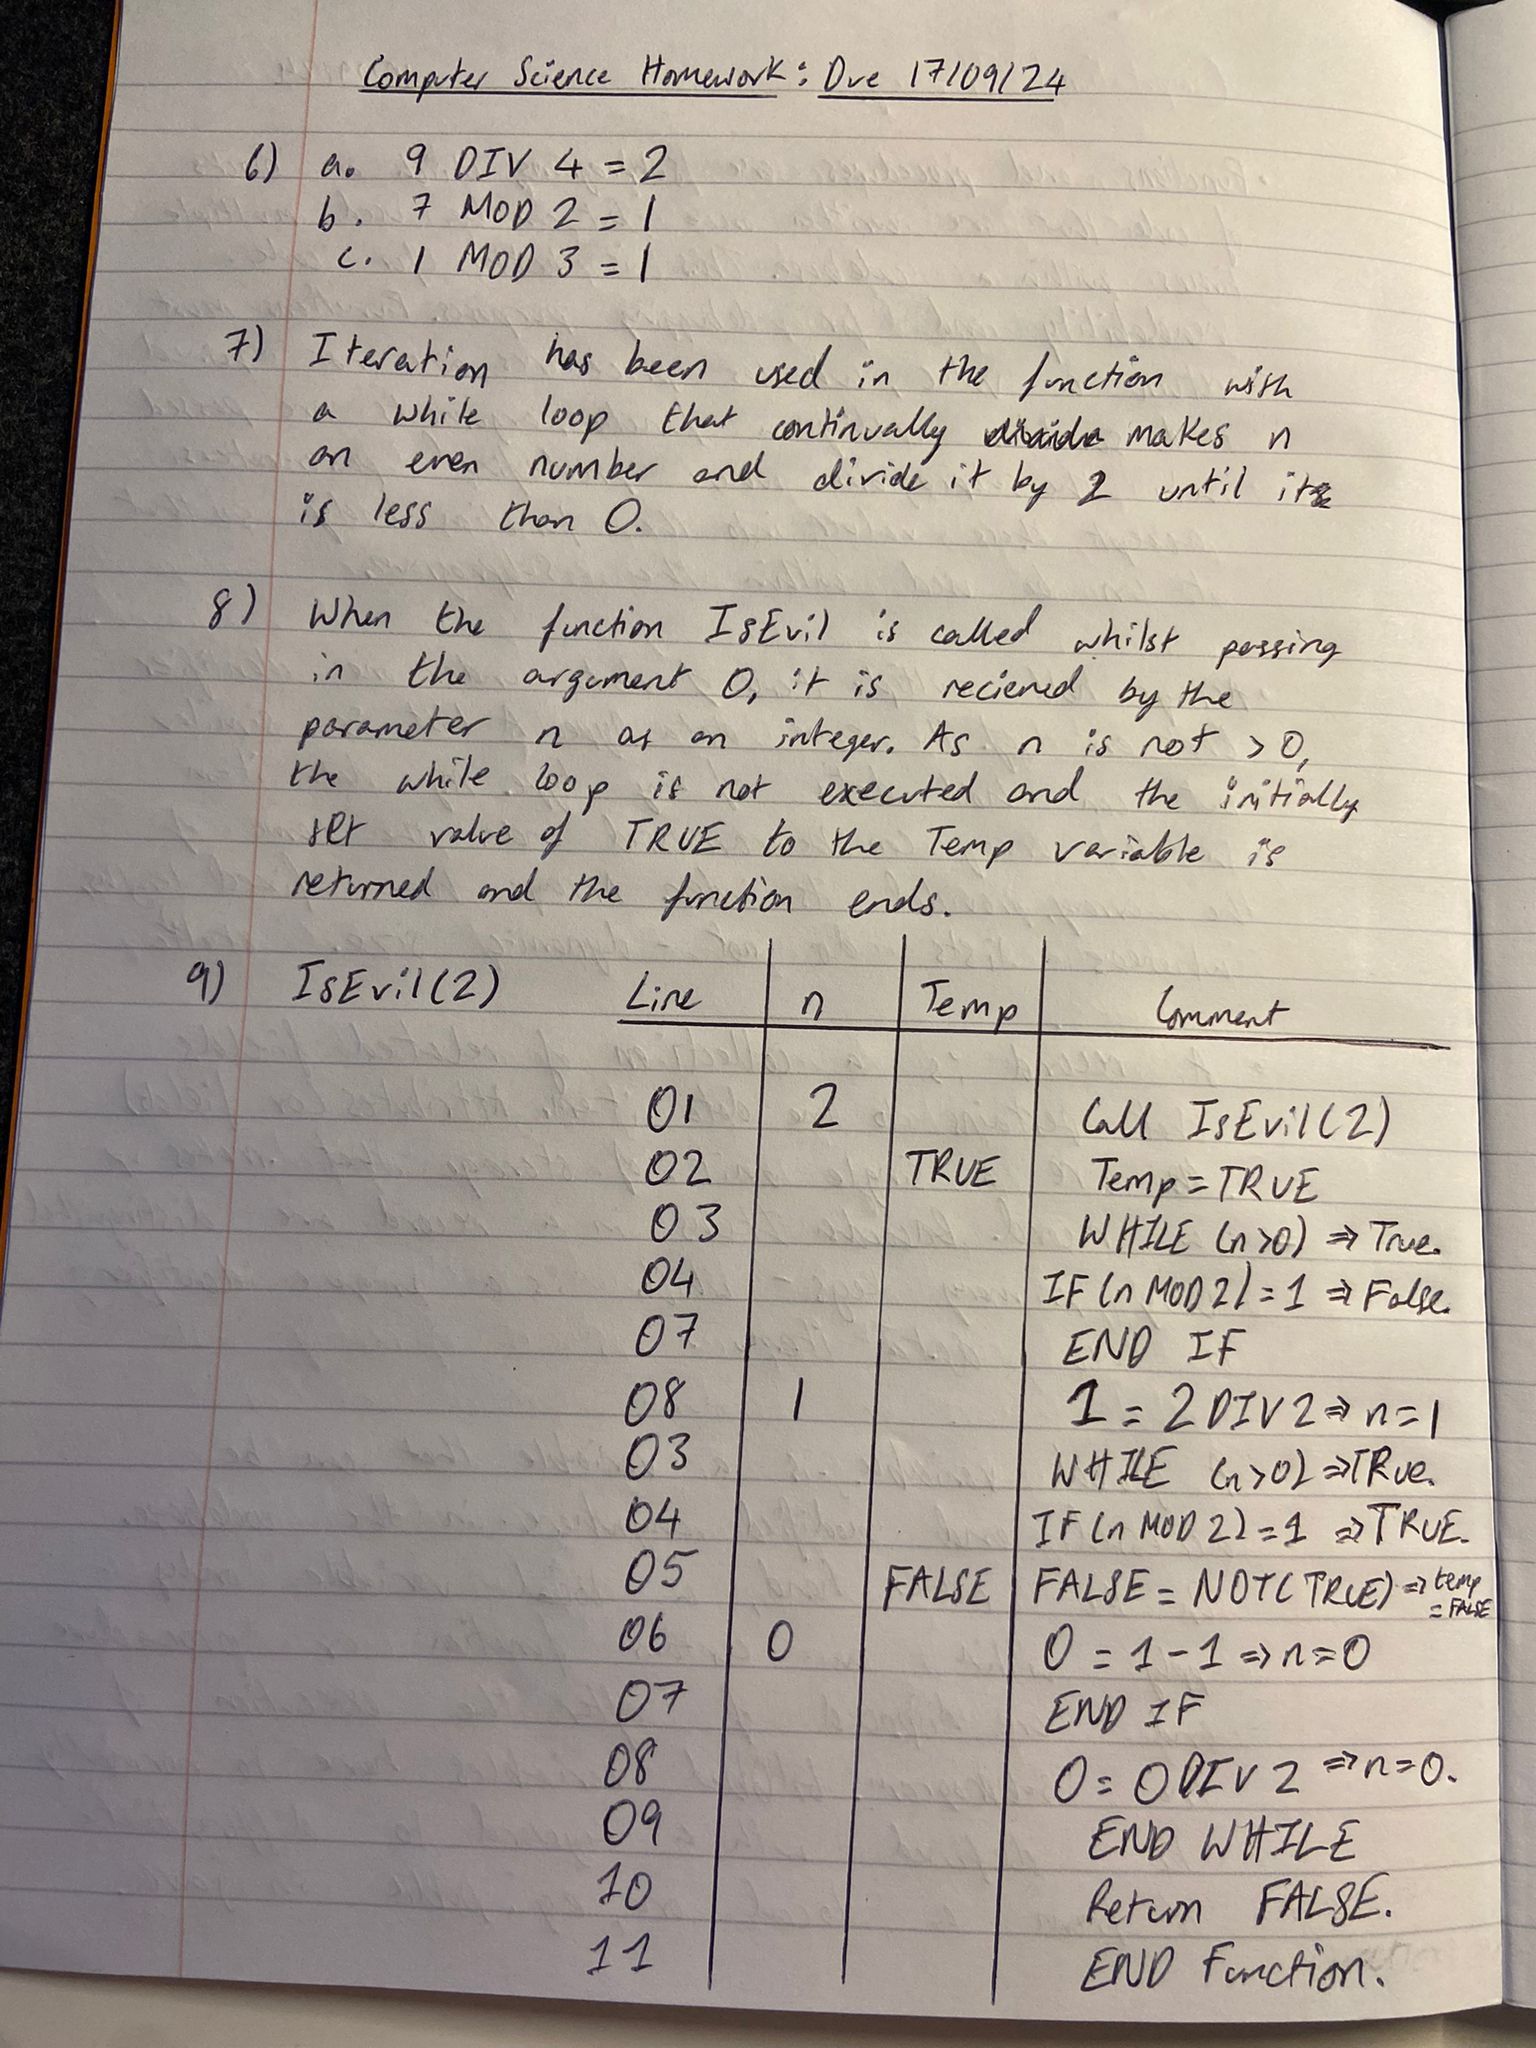 Computer Science Homework: Due 17/09/24
6) a. 9 DIV 4 = 2
b. 7 MOD 2 = 1
c. 1 MOD 3 = 1
7) Iteration has been used in the function with
a while loop that continually makes n
an even number and divide it by 2 until it
is less than 0.
8) When the function IsEvil is called whilst passing
in the argument 0, it is recieved by the
parameter n as an integer. As n is not > 0,
the while loop is not executed and the initially
set value of TRUE to the Temp variable is
returned and the function ends.
9) IsEvil(2) Line n Temp Comment
01 2 Call IsEvil(2)
02 TRUE Temp = TRUE
03 WHILE (n>0) => True.
04 IF (n MOD 2) = 1 => False.
07 END IF
08 1 1 = 2 DIV 2 => n = 1
03 WHILE (n>0) => TRue.
04 IF (n MOD 2) = 1 => TRUE.
05 FALSE FALSE = NOT(TRUE) => temp = FALSE
06 0 0 = 1 - 1 => n = 0
07 END IF
08 0 = 0 DIV 2 => n = 0.
09 END WHILE
10 Return FALSE.
11 END Function.